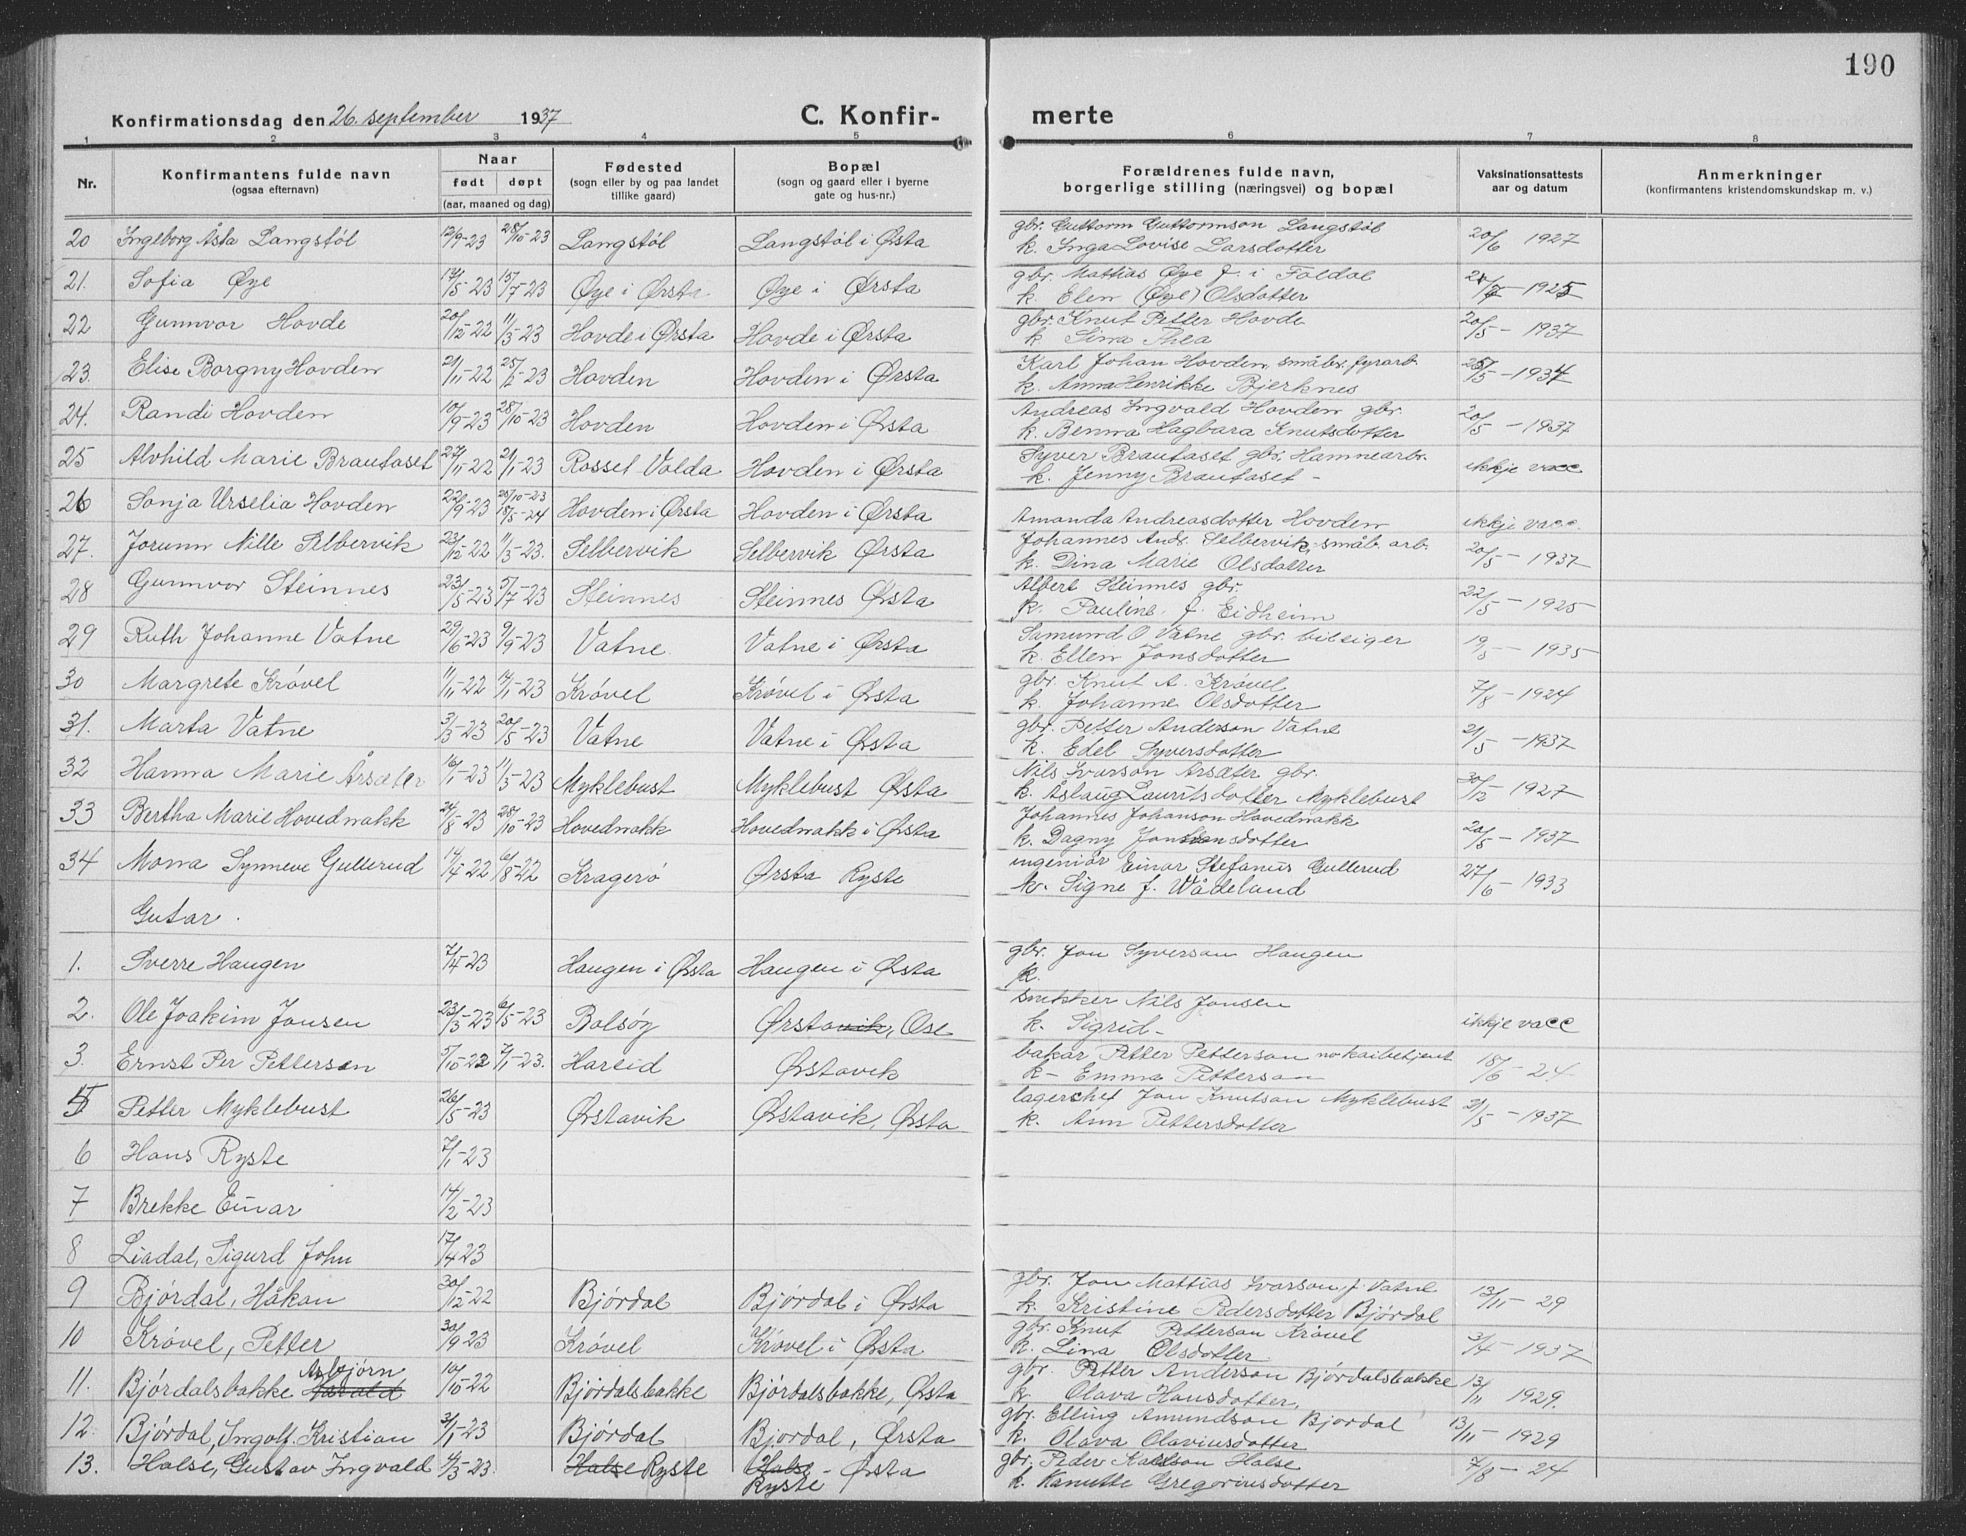 190
Konfirmationsdag den 26. september 1937 C. Konfir- merte
1 2 3 4 5 6 7 8
Nr. Konfirmantens fulde navn (ogsaa efternavn) Naar født døpt (aar, maaned og dag) Fødested (sogn eller by og paa landet tillike gaard) Bopæl (sogn og gaard eller i byerne gate og hus-nr.) Forældrenes fulde navn, borgerlige stilling (næringsvei) og bopæl Vaksinationsattests aar og datum Anmerkninger (konfirmantens kristendomskundskap m. v.)
20 Ingeborg Åsta Langstøl 12/9-23 28/10-23 Langstøl Langstøl i Ørsta gbr. Guttorm Guttormson Langstøl
k. Inga Lovise Larsdotter 20/6 1927
21. Sofia Øye 17/5-23 15/7-23 Øye i Ørsta Øye i Ørsta gbr. Mattias Øye f. i Foldal
k. Elen (Øye) Olsdotter 1925
22 Gunnvor Hovde 20/12-22 11/3-23 Hovde i Ørsta Hovde i Ørsta gbr. Knut Petter Hovde
k. Sina Thea 20/5 - 1937
23. Elise Borgny Hovden 21/11-22 25/2-23 Hovden Hovden i Ørsta Karl Johan Hovden, småbr. fyrarb.
k. Anna Henrikke Bjerknes 25/5 - 1937
24. Randi Hovden 10/9-23 28/10-23 Hovden Hovden i Ørsta Andreas Ingvald Hovden gbr.
k. Benna Hagbara Knutsdotter 20/5 - 1937
25 Alvhild Marie Brautaset 27/11-22 21/1-23 Rosset Volda Hovden i Ørsta Syver Brautaset gbr. Hamnearbr.
k. Jenny Brautaset - ikkje vacc
26 Sonja Urselia Hovden 22/9-23 28/10-23 18/5-24 Hovden i Ørsta Hovden i Ørsta Amanda Andreasdotter Hovden ikkje vacc.
27. Jorunn Nille Selbervik 23/12-22 11/3-23. Selbervik Selbervik Ørsta Johannes And. Selbervik, småb. arb.
k. Dina Marie Olsdotter 20/5 - 1937
28 Gunnvor Steinnes 23/5-23 5/7-23 Steinnes Steinnes Ørsta Albert Steinnes gbr.
k. Pauline f. Eidheim 22/5 - 1925
29 Ruth Johanne Vatne 29/6-23 9/9-23 Vatne Vatne i Ørsta Samund O Vatne gbr. bileiger
k. Ellen Jonsdotter 19/5 - 1935
30 Margrete Krøvel 11/11-22 14/1-23 Krøvel Krøvel i Ørsta gbr. Knut A. Krøvel
k. Johanne Olsdotter 7/8 - 1924
31. Marta Vatne 3/3-23 20/5-23 Vatne Vatne i Ørsta gbr. Petter Anderson Vatne
k. Edel Syversdotter 21/5 - 1937
32 Hanna Marie Årsæter 16/1-23 11/3-23 Myklebust Myklebust Ørsta Nils Ivarson Årsæter gbr.
k. Åslaug Lauritsdotter Myklebust 30/12 - 1927
33 Bertha Marie Hovednakk 24/8-23 28/10-23 Hovednakk Hovednakk i Ørsta Johannes Johanson Hovednakk
k. Dagny 20/5 - 1937
34 Mona Synneve Gullerud 14/4-22 6/8-22 Kragerø Ørsta Ryste ingeniør Einar Stefanus Gullerud
k. Signe f. Vådeland 27/6 - 1933
Gutar.
1. Sverre Haugen 7/4-23 Haugen i Ørsta Haugen i Ørsta gbr. Jon Syverson Haugen
k.
2. Ole Joakim Jonsen 23/3-23 6/5-23 Bolsøy Ørstavik, Ose snikker Nils Jonsen
k. Sigrid - ikkje vacc
3. Ernst Per Pettersen 5/10-22 7/1-23. Hareid Ørstavik bakar Petter Petterson
k - Emma Petterson 18/6 - 24.
5 Petter Myklebust 26/5-23 Ørstavik Ørstavik, Ørsta lagerchef Jon Knutson Myklebust
k. Ann Pettersdotter 21/5 - 1937
6 Hans Ryste 7/1-23
7 Brekke Einar 14/2-23
8 Liadal, Sigurd John 17/4-23
9 Bjørdal, Håkan 30/12-22 Bjørdal Bjørdal i Ørsta gbr. Jon Mattias Ivarson f. Vatne
k. Kristine Pedersdotter Bjørdal 13/11 - 29
10 Krøvel, Petter 30/9-23 Krøvel Krøvel i Ørsta gbr. Knut Petterson Krøvel
k. Lina Olsdotter 3/4 - 1937
11. Bjørdalsbakke Asbjørn Harald 10/10-22 Bjørdalsbakke Bjørdalsbakke, Ørsta gbr. Petter Anderson Bjørdalsbakke
k Olava Hansdotter, 13/11 1929.
12. Bjørdal, Ingolf Kristian 31/1-23 Bjørdal Bjørdal, Ørsta gbr. Elling Amundson Bjørdal
k. Olava Olaviusdotter 13/11 - 1929
13. Halse, Gustav Ingvald 4/3-23. Halse Ryste Halse - Ørsta
Ryste gbr. Peder Halse
k. Kanutte Gregoriusdotter 7/8 - 24